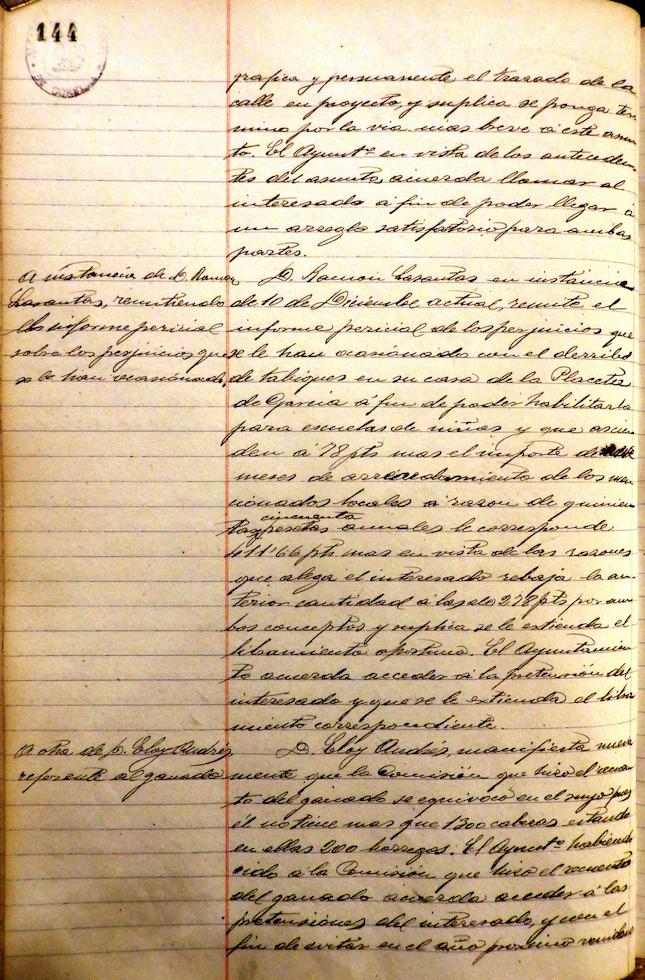 144
grafica y permanente el trazado de la
calle en proyecto, y suplica se ponga ter
mino por la via mas breve á este asun
to. El Ayuntº en vista de los anteceden
tes del asunto, acuerda llamar al
interesado á fin de poder llegar á
un arreglo satisfactorio para ambas
partes.
A instancia de D. Ramon
Lasantas, remitiendo
informe pericial
sobre los perjuicios que
se le han ocasionado.
D. Ramon Lasantas en instancia
de 10 de Diciembre actual, remite el
informe pericial de los perjuicios que
se le han ocasionado con el derribo
de tabiques en su casa de la Placeta
de Garcia á fin de poder habilitarla
para escuelas de niñas y que ascien
den á 78 pts mas el importe de
meses de arrendamiento de los men
cionados locales á razon de quinien
tas cincuenta pesetas anuales le corresponde
411'66 pts mas en vista de las razones
que alega el interesado rebaja la an
terior cantidad á la de 278 pts por am
bos conceptos y suplica se le estienda el
libramiento oportuno. El Ayuntamien
to acuerda acceder á la pretensión del
interesado y que se le extienda el libra
miento correspondiente.
A otra de D. Eloy Andrés
referente al ganado
D. Eloy Andrés, manifiesta nueva
mente, que la Comisión que hizo el recuen
to del ganado se equivocó en el suyo pues
él no tiene mas que 1300 cabezas estando
en ellas 200 borregos. El Ayuntº habiendo
oido á la Comisión que hizo el recuento
del ganado acuerda acceder á las
pretensiones del interesado, y con el
fin de evitar en el año proximo venidero